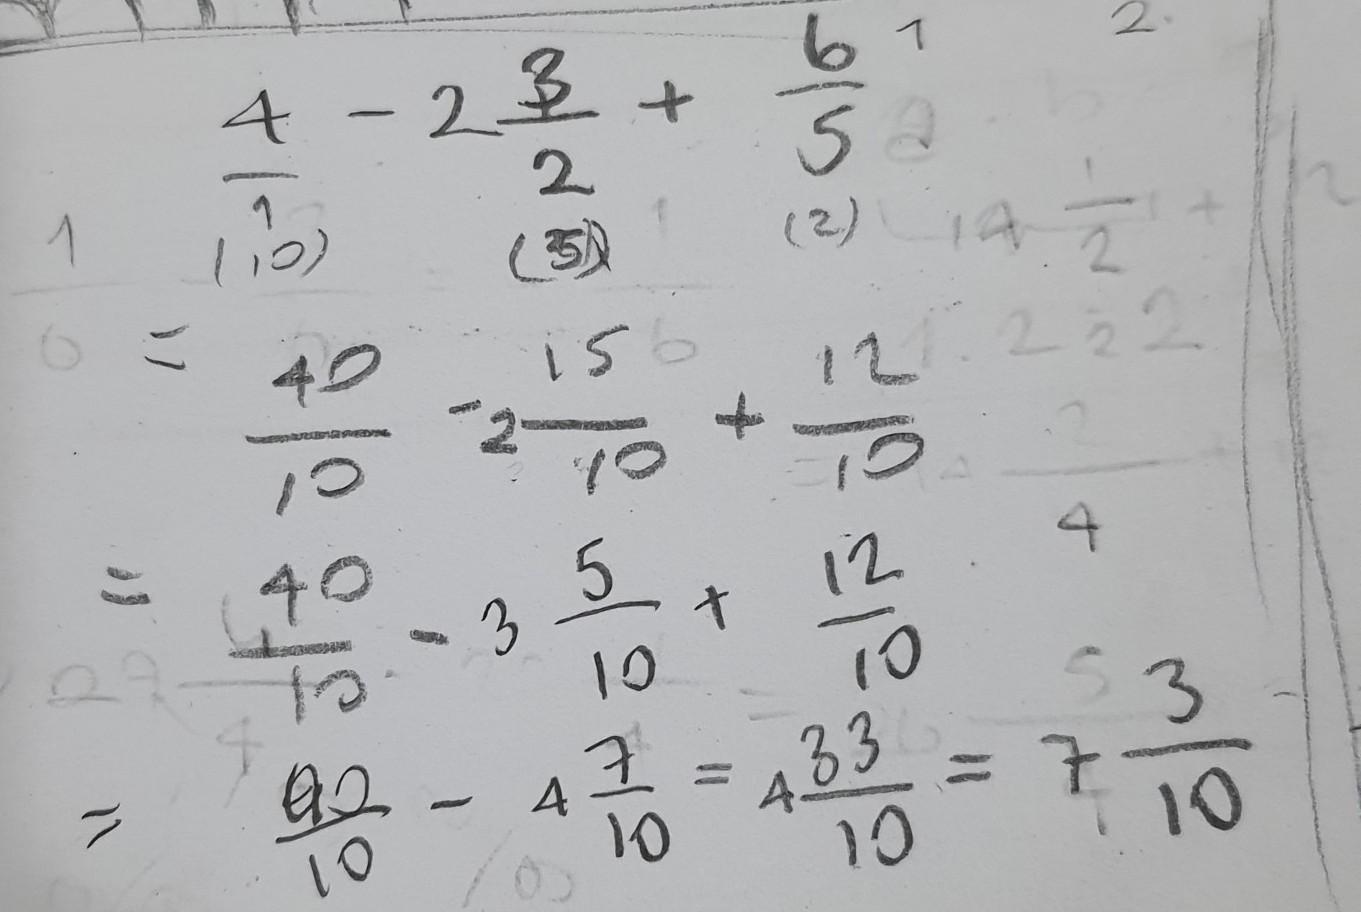 4/1 - 2 3/2 + 6/5
(10) (5) (2)
= 40/10 - 2 15/10 + 12/10
= 40/10 - 3 5/10 + 12/10
= 40/10 - 4 7/10 = 4 33/10 = 7 3/10